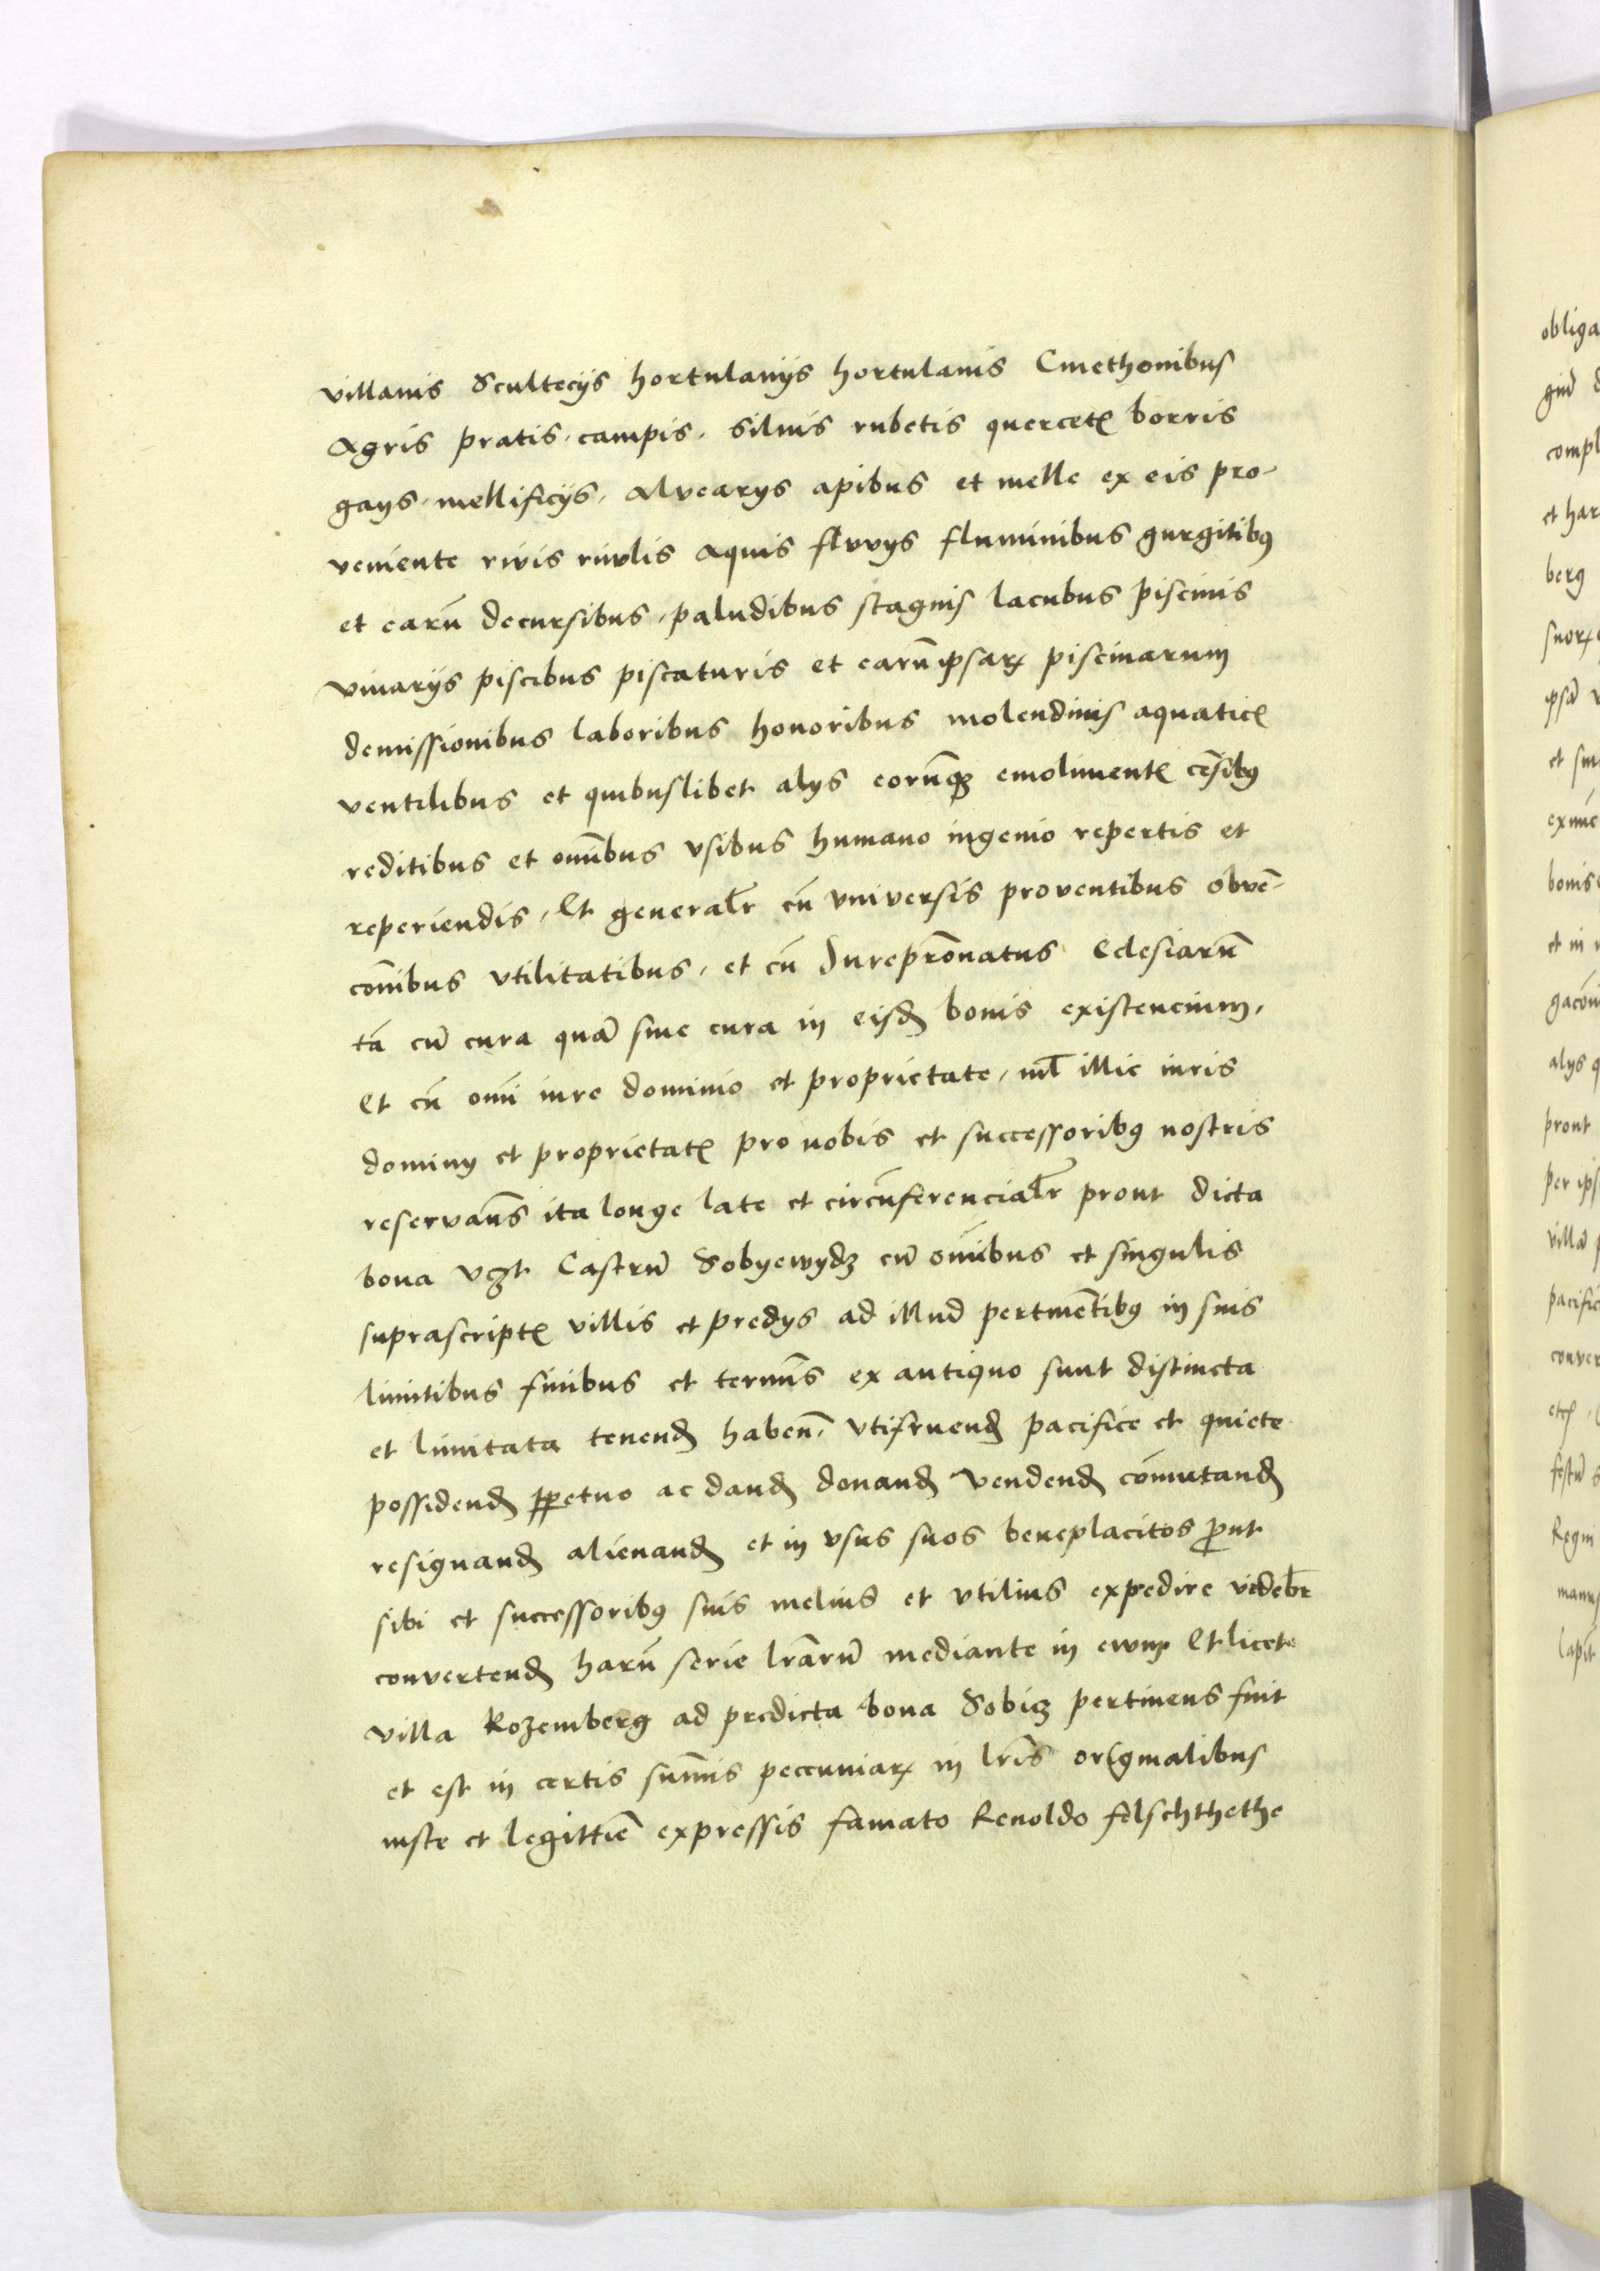 villanis Scultecijs hortulanijs hortulanis Cmethonibus
Agris pratis. campis. silvis rubetis quercetꝭ borris
gays. mellificijs. alvearijs apibus et melle ex eis pro-
veniente rivis rivulis aquis fluvijs fluminibus gurgitibꝰ
et earū decursibus, paludibus stagnis lacubus piscinis
vivarijs piscibus piscaturis et earūipsaꝝ piscinarum
demissionibus laboribus honoribus molendinis aquaticꝭ
ventilibus et quibuslibet alijs eorūqꝫ emolimentꝭ cēsibꝰ
reditibus et oībus vsibus humano ingenio repertis et
reperiendis, Et generalr̄ cū vniversis proventibus obvē-
cōnibus vtilitatibus, et cū Jureprōnatus eclesiarū
tā cū cura quā sine cura in eisđ bonis existencium,
Et cū omī iure dominio et proprietate, nl̄ illic iuris
dominij et proprietatꝭ pro nobis et successoribꝰ nostris
reservān̄s ita longe late et circūferencialr̄ prout dicta
bona vꝫt Castrū Sobyewydz cū oībus et singulis
suprascriptꝭ villis et predijs ad illud pertinētibꝰ in suis
limitibus finibus et termīs ex antiquo sunt distincta
et limitata tenenđ habenđ, vtifruenđ pacifice et quiete
possidenđ ꝑpetuo ac danđ donanđ vendenđ cōmutanđ
resignanđ alienanđ et in vsus suos beneplacitos ꝓut
sibi et successoribꝰ suis melius et vtilius expedire videbr̄
convertenđ harū serie lrārū mediante in ewum Et licet
villa Rozemberg ad predicta bona Sobiꝫ pertinens fuit
et est in certis sum̄is peccuniaꝝ in lrīs originalibus
iuste et legittīe expressis famato Renoldo felschthethe
obliga
compl
et har
suoꝝ
et su
bonis
et in
alys q
prout
per ips
villā
pacific
conver
Regni
manus